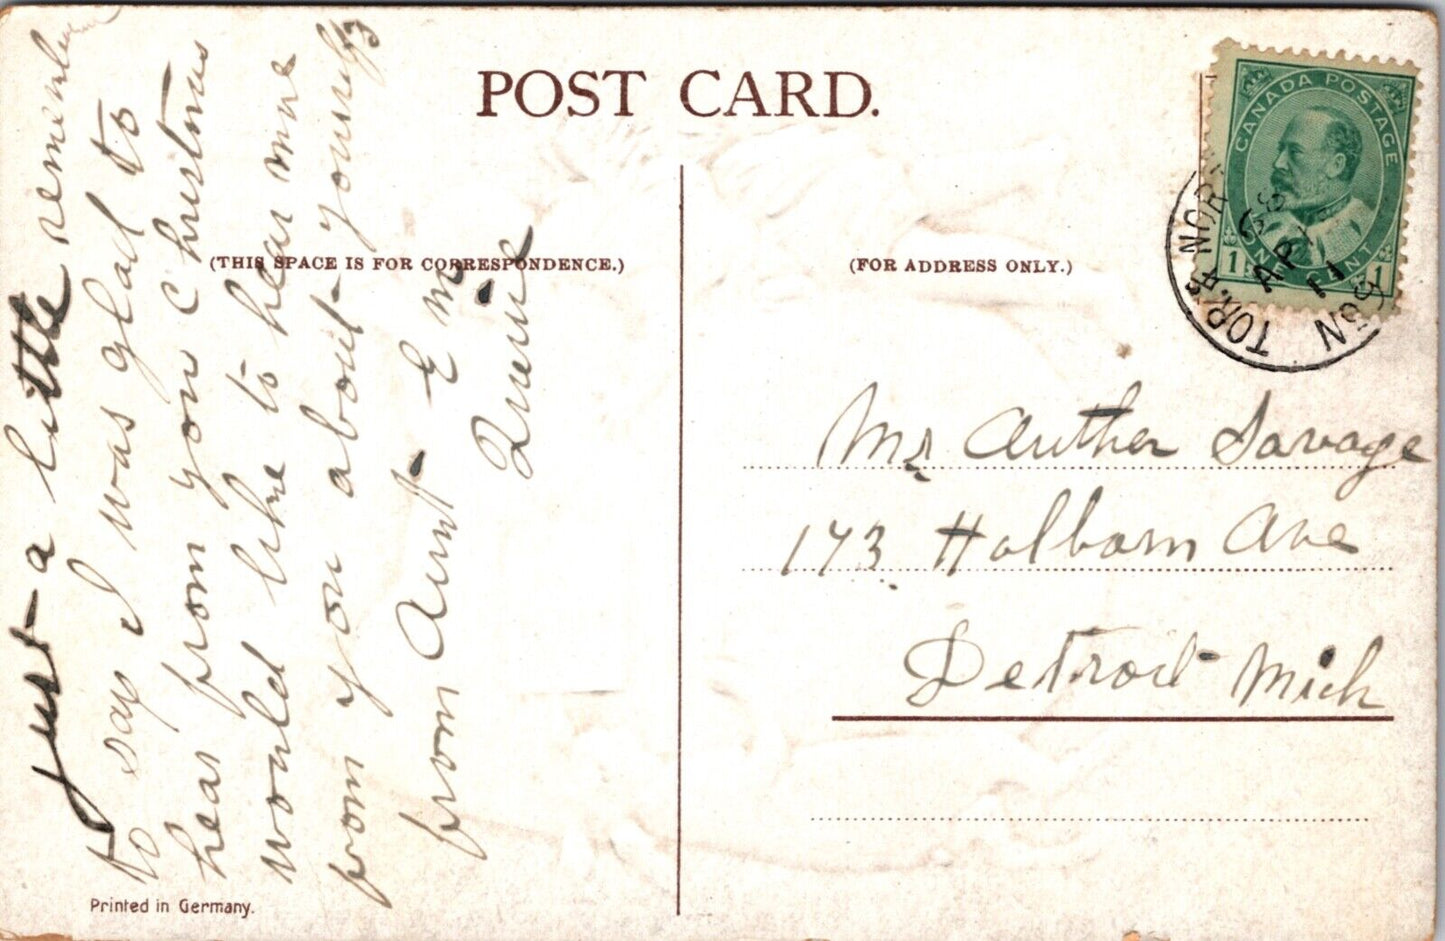 POST CARD.
(THIS SPACE IS FOR CORRESPONDENCE.)
(FOR ADDRESS ONLY.)
CANADA POSTAGE
ONE CENT
1 1
TOR.
AP 11
Just a little remember
to say I was glad to
hear from you Christmas
would like to hear more
from you about yourself
from Aunt E m
Quinie
Mr Auther Savage
173 Holbarn Ave
Detroit Mich
Printed in Germany.